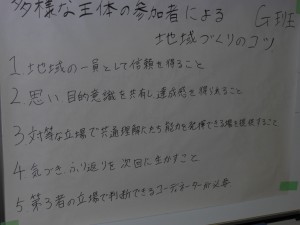 多様な主体の参加者による
G班
地域づくりのコツ
1. 地域の一員として信頼を得ること
2. 思い 目的意識を共有し達成感を得られること
3 対等な立場で共通理解にたち能力を発揮できる場を提供すること
4 気づき、ふり返りを次回に生かすこと
5 第3者の立場で判断できるコーディネーターが必要